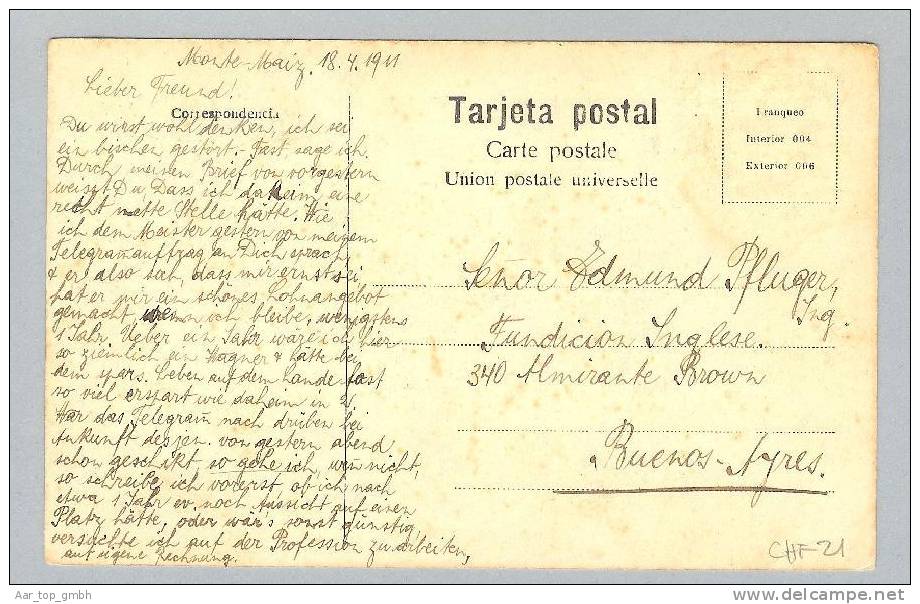 Monte-Maiz, 18.4.1911
Lieber Freund!
Correspondencia
Du wirst wohl denken, ich sei
ein bischen gestört. Fast, sage ich.
Durch meinen Brief von vorgestern
weiszt Du Dass ich daheim eine
recht nette Stelle hätte. Wie
ich dem Meister gestern von meinem
Telegrammauftrag an Dich sprach
& er also sah, dass mir ernst sei,
hat er mir ein schönes Lohnangebot
gemacht, wenn ich bleibe, wenigstens
1 Jahr. Ueber ein Jahr wäre ich hier
so ziemlich ein Wagner & hätte bei
dem spars. Leben auf dem Lande fast
so viel erspart wie daheim in 2
War das Telegram̄ nach drüben bei
Ankunft desjen. von gestern abend
schon geschikt, so gehe ich, wen nicht,
so schreibe ich vorerst ob ich nach
etwa 1 Jahr ev. noch Aussicht auf einen
Platz hätte, oder wär's sonst günstig,
versuchte ich auf der Profession zu arbeiten,
auf eigene Rechnung.
Tarjeta postal
Carte postale
Union postale universelle
Franqueo
Interior 004
Exterior 006
Señor Edmund Pfluger,
Ing.
Fundicion Inglese.
340 Almirante Brown
Buenos-Ayres.
CHF 21
Aar_top_gmbh
www.delcampe.net